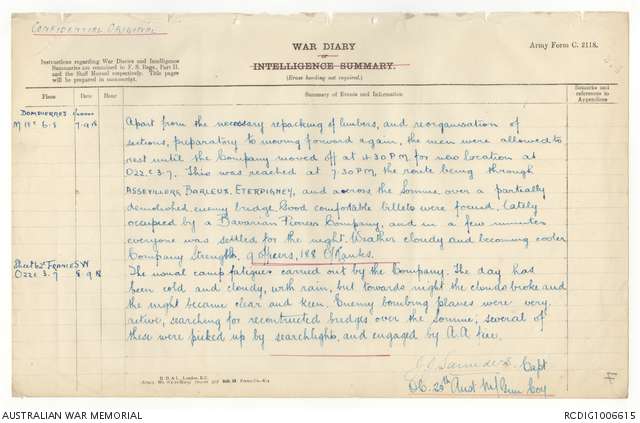 CONFIDENTIAL ORIGINAL
WAR DIARY
Army Form C. 2118.
INTELLIGENCE SUMMARY.
(Erase heading not required.)
Instructions regarding War Diaries and Intelligence
Summaries are contained in F. S. Regs., Part II.
and the Staff Manual respectively. Title pages
will be prepared in manuscript.
Place
Date
Hour
Summary of Events and Information
Remarks and
references to
Appendices
DOMPIERRE
7.9.18
Apart from the necessary repacking of limbers, and reorganisation of
sections, preparatory to moving forward again, the men were allowed to
rest until the Company moved off at 4.30 PM for new location at
O22.c.3.7. This was reached at 7.30 PM, the route being through
ASSEVILLERS, BARLEUX, ETERPIGNEY, and across the Somme over a partially
demolished enemy bridge. Good comfortable billets were found, lately
occupied by a Bavarian Pioneer Company, and in a few minutes
everyone was settled for the night. Weather cloudy and becoming cooler
Company Strength, 9 officers, 188 O/Ranks.
Sheet 62c FRANCE SW
O22c 3.7
8 9 18
The usual camp fatigues carried out by the Company. The day has
been cold and cloudy, with rain, but towards night the clouds broke and
the night became clear and keen. Enemy bombing planes were very
active, searching for reconstructed bridges over the Somme, several of
these were picked up by searchlights, and engaged by A.A fire.
Capt
OC. 25th Aust M/Gun Coy
AUSTRALIAN WAR MEMORIAL
RCDIG1006615